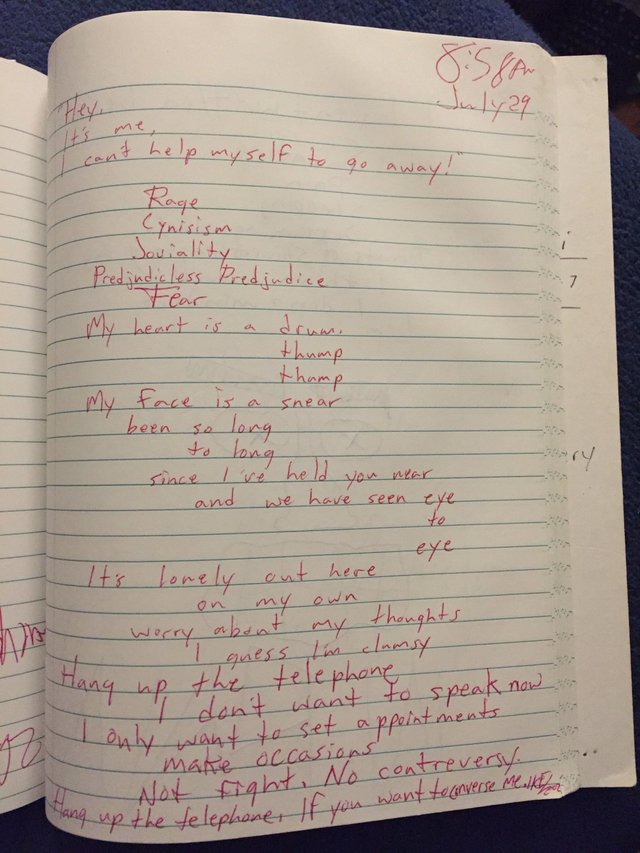 8:58 Am
July 29
"Hey,
It's me,
I can't help myself to go away!"
Rage
Cynisism
Joviality
Predjudicless Predjudice
Fear
My heart is a drum.
thump
thump
My face is a snear
been so long
to long
since I've held you near
and we have seen eye
to
eye
It's lonely out here
on my own
worry about my thoughts
I guess I'm clumsy
Hang up the telephone
I don't want to speak now
I only want to set appointments
make occasions
Not fight, No contreversy.
Hang up the telephone, If you want to converse me,
i
7
ry